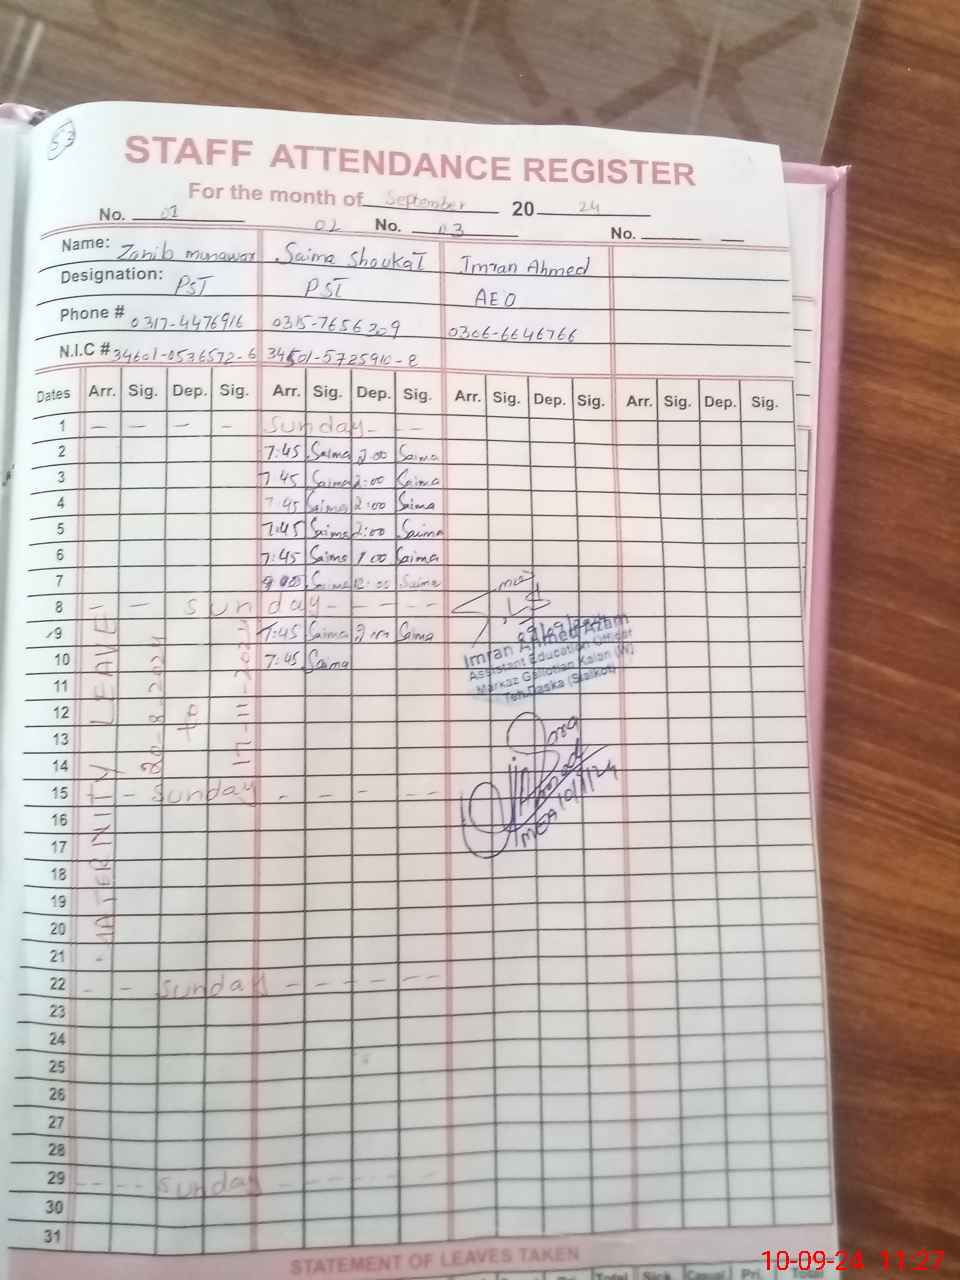 53
STAFF ATTENDANCE REGISTER
For the month of September 2024
No. 01 02 No. 03 No.
Name: Zanib munawar Saima Shoukat Imran Ahmed
Designation: PST PST AEO
Phone # 0317-4476916 0315-7656309 0306-6646766
N.I.C # 34601-0536572-6 34601-5725910-8
Dates Arr. Sig. Dep. Sig. Arr. Sig. Dep. Sig. Arr. Sig. Dep. Sig. Arr. Sig. Dep. Sig.
1 - - - - Sunday - - -
2 7:45 Saima 2:00 Saima
3 7:45 Saima 2:00 Saima
4 7:45 Saima 2:00 Saima
5 7:45 Saima 2:00 Saima
6 7:45 Saima 1:00 Saima
7 Saima 12:00 Saima
8 - - sunday - - - - -
9 7:45 Saima 2:00 Saima
10 7:45 Saima
11
12
13
14
15 - sunday - - - - -
16
17
18
19
20
21
22 - - sunday - - - - - -
23
24
25
26
27
28
29 - - - - sunday - - - - - -
30
31
MATERNITY LEAVE
20-8-2024
to
17-11-2024
09/09/2024
Imran Ahmed Azam
Assistant Education Officer
Markaz Gallotian Kalan (W)
Teh.Daska (Sialkot)
MEA 10/9/24
STATEMENT OF LEAVES TAKEN
Total Sick Casual Pri Total
10-09-24 11:27